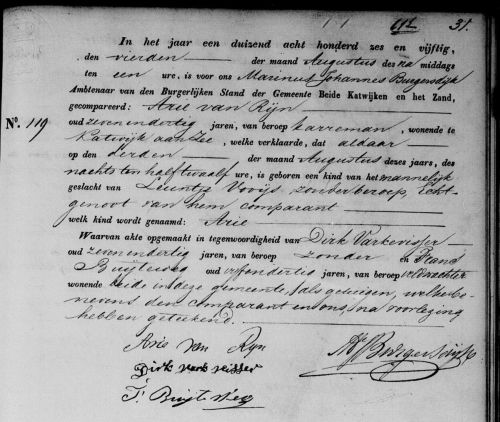 112 31.
In het jaar een duizend acht honderd zes en vijftig,
den vierden der maand Augustus des na middags
ten een ure, is voor ons Marinus Johannes Burgersdijk
Ambtenaar van den Burgerlijken Stand der Gemeente Beide Katwijken en het Zand,
gecompareerd: Arie van Rijn
Nº. 119
oud zeven en dertig jaren, van beroep karreman, wonende te
Katwijk aan Zee, welke verklaarde, dat aldaar
op den derden der maand Augustus dezes jaars, des
nachts ten half twaalf ure, is geboren een kind van het mannelijk
geslacht van Leuntje Vooijs, zonder beroep, Echt-
genoot van hem comparant
welk kind wordt genaamd: Arie
Waarvan akte opgemaakt in tegenwoordigheid van Dirk Varkevisser
oud zeven en dertig jaren, van beroep zonder en
Buijteweg oud vijf en dertig jaren, van beroep veldwachter
wonende beide in deze gemeente, als getuigen, welke be-
nevens den comparant en ons, na voorlezing
hebben geteekend.
Arie van Ryn
Dirk varkevisser
Buyteweg
MJBurgersdijk